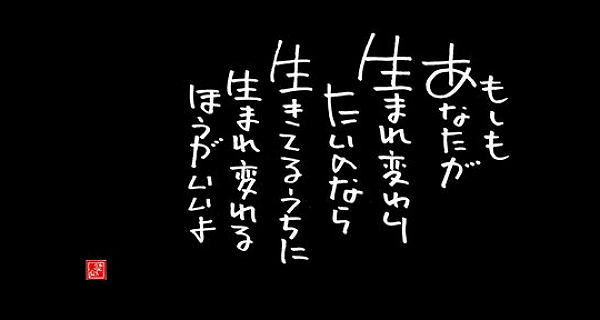 もしも
あなたが
生まれ変わり
たいのなら
生きてるうちに
生まれ変れる
ほうがいいよ